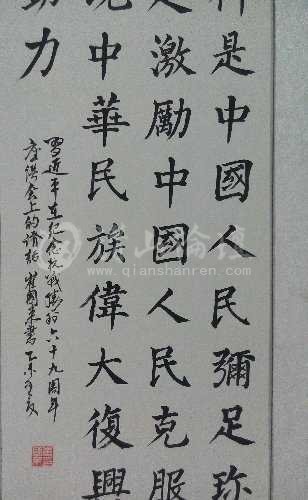 是中國人民彌足珍
是激勵中國人民克服
現中華民族偉大復興
動力
習近平在纪念抗战勝利六十九周年
座談会上的講話 崔国来書 乙未
千山论坛
www.qianshanren.com